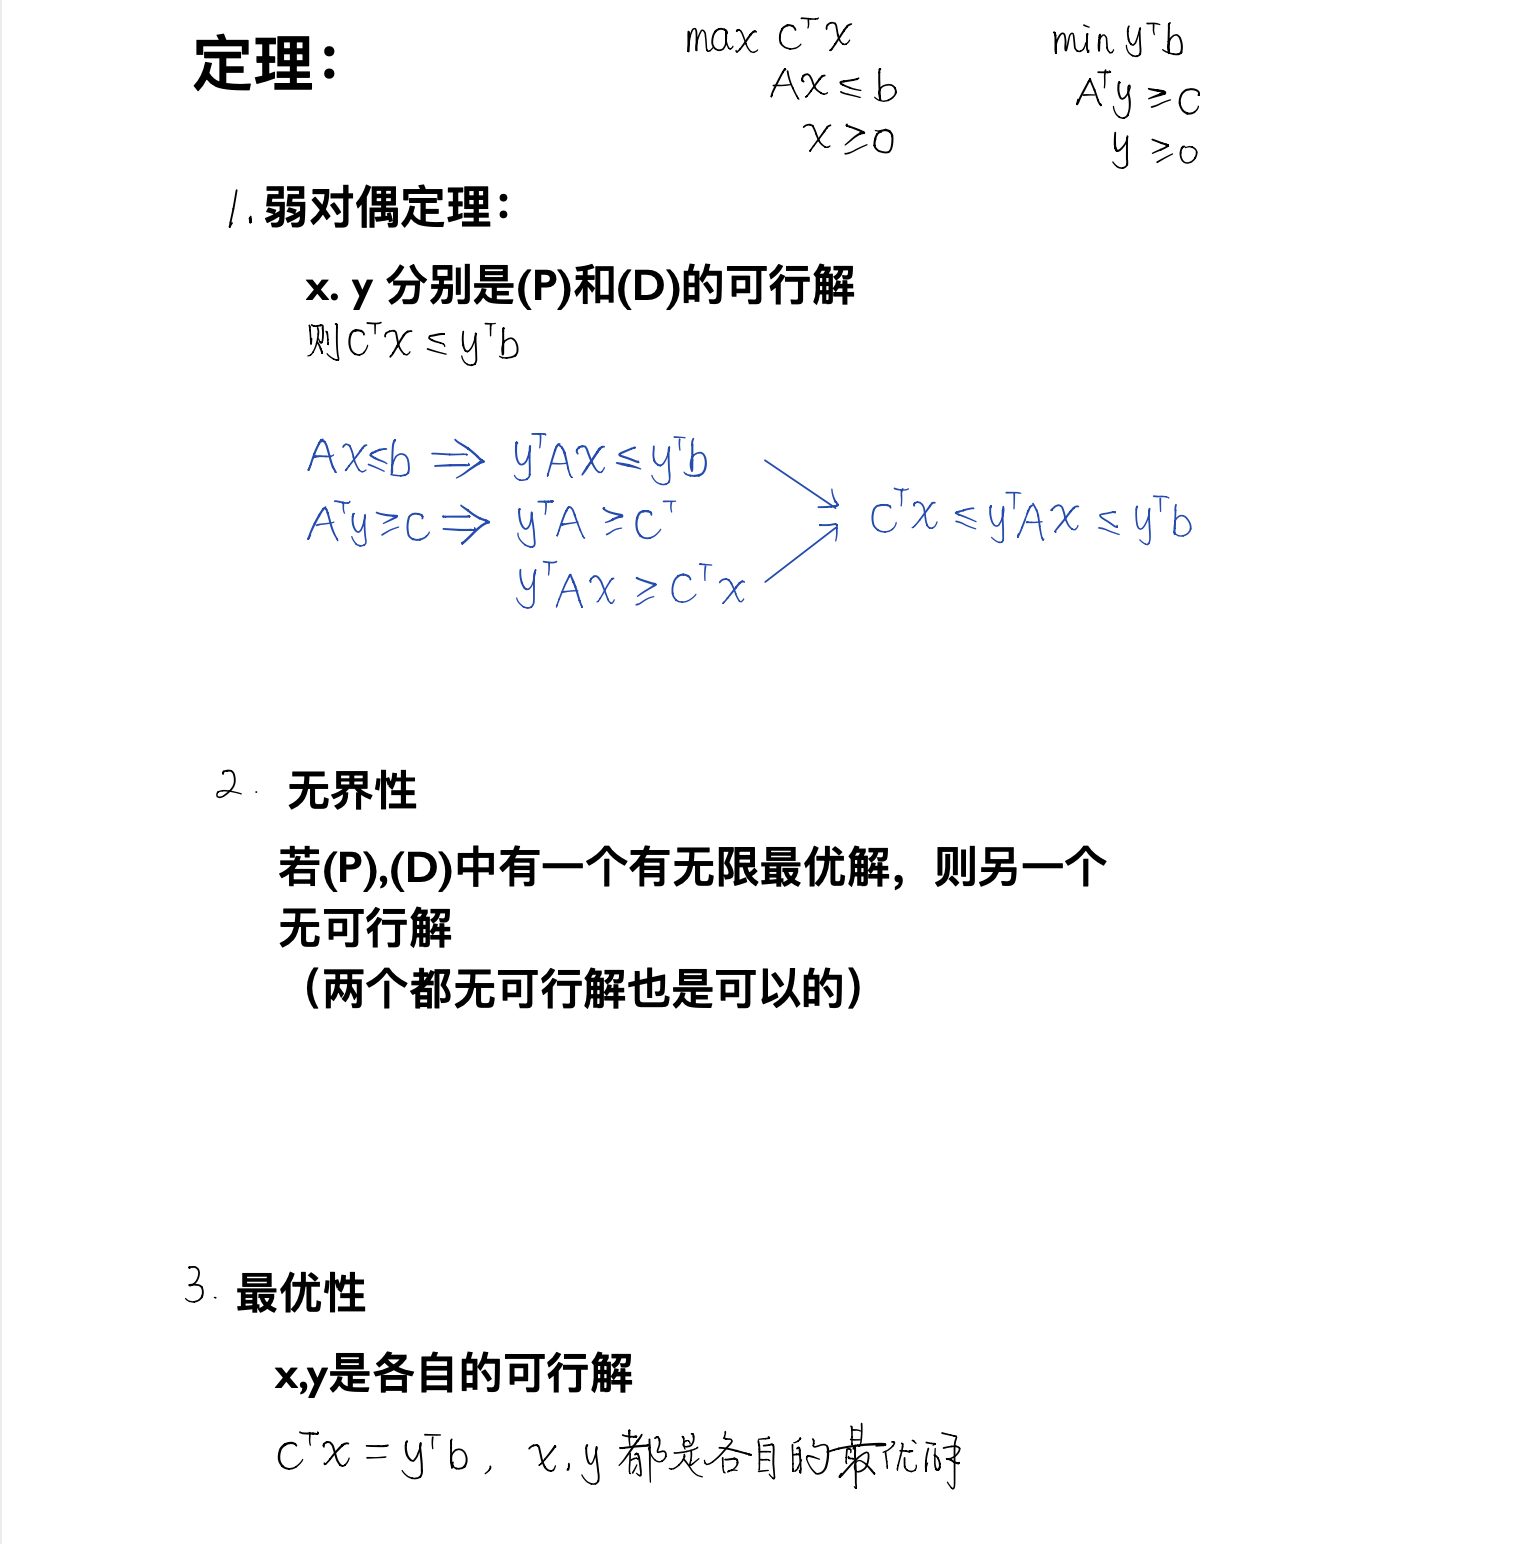 定理：
max CᵀX
AX ≤ b
X ≥ 0
min yᵀb
Aᵀy ≥ C
y ≥ 0
1. 弱对偶定理：
x. y 分别是(P)和(D)的可行解
则CᵀX ≤ yᵀb
AX≤b ⇒ yᵀAX ≤ yᵀb
Aᵀy ≥ C ⇒ yᵀA ≥ Cᵀ
yᵀAX ≥ CᵀX
CᵀX ≤ yᵀAX ≤ yᵀb
2. 无界性
若(P),(D)中有一个有无限最优解，则另一个
无可行解
（两个都无可行解也是可以的）
3. 最优性
x,y是各自的可行解
CᵀX = yᵀb, x.y 都是各自的最优解